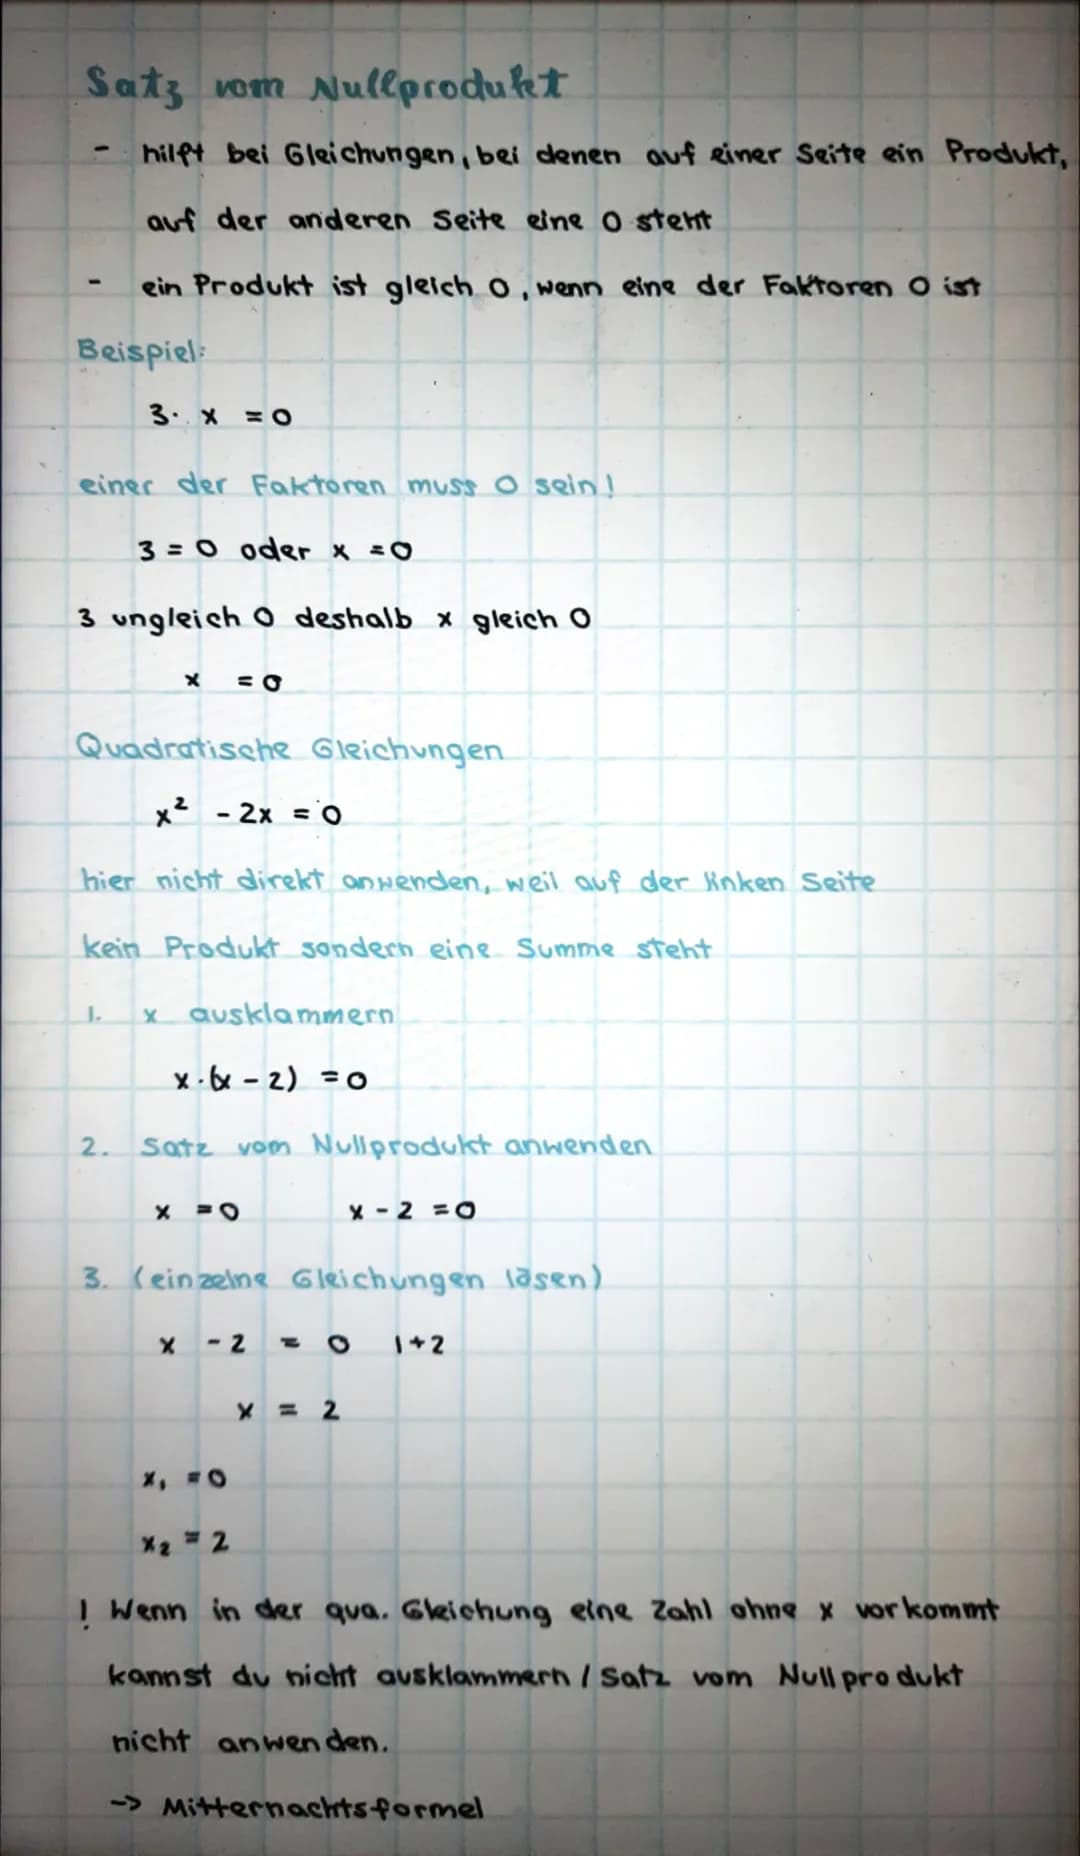 Satz vom Nullprodukt
- hilft bei Gleichungen, bei denen auf einer Seite ein Produkt,
auf der anderen Seite eine 0 steht
- ein Produkt ist gleich 0, wenn eine der Faktoren 0 ist
Beispiel:
3 · x = 0
einer der Faktoren muss 0 sein!
3 = 0 oder x = 0
3 ungleich 0 deshalb x gleich 0
x = 0
Quadratische Gleichungen
x² - 2x = 0
hier nicht direkt anwenden, weil auf der linken Seite
kein Produkt sondern eine Summe steht
1. x ausklammern
x · (x - 2) = 0
2. Satz vom Nullprodukt anwenden
x = 0 x - 2 = 0
3. (einzelne Gleichungen lösen)
x - 2 = 0 |+2
x = 2
x₁ = 0
x₂ = 2
! Wenn in der qua. Gleichung eine Zahl ohne x vorkommt
kannst du nicht ausklammern / Satz vom Nullprodukt
nicht anwenden.
-> Mitternachtsformel